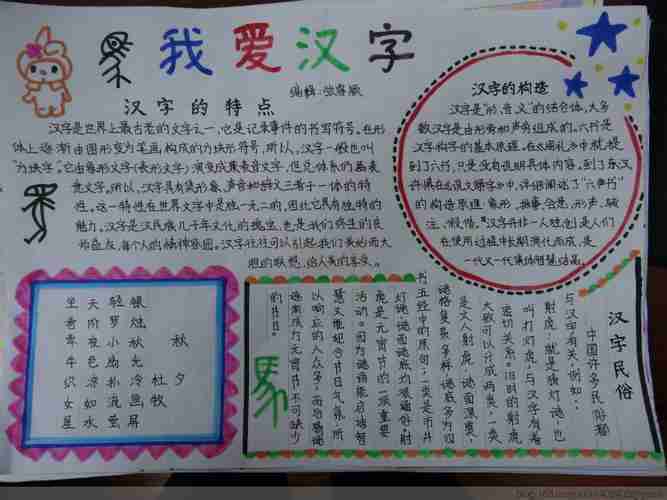 我爱汉字
汉字的特点
汉字是世界上最古老的文字之一，它是记录事件的书写符号。在形
体上逐渐由图形变为笔画构成的方块形符号，所以，汉字一般也叫
“方块字”。它由象形文字（表形文字）演变成兼表音义文字，但总体系仍是表
意文字。所以，汉字具有集形象、声音和辞义三者于一体的特
性。这一特性在世界文字中是独一无二的，因此它具有独特的
魅力。汉字是汉民族几千年文化的瑰宝，也是我们终生的良
师益友，每个人的精神家园。汉字往往可以引起我们美妙而大
胆的联想，给人美的享受。
汉字的构造
汉字是“形、音、义”的结合体，大多
数汉字是由形旁和声旁组成的。六书是
汉字构字的基本原理，在《周礼》中就提
到了六书，只是没有说明具体内容。到了东汉
许慎在《说文解字》中，详细阐述了“六书”
的构造原理：象形、指事、会意、形声、转
注、假借。汉字并非一人独创，是人们
在使用过程中长期演化而成，是
一代又一代集体智慧结晶。
银烛秋光冷画屏
轻罗小扇扑流萤
天阶夜色凉如水
卧看牵牛织女星
秋夕
杜牧
汉字民俗
中国许多民俗都
与汉字有关，例如：
射虎：就是猜灯谜，也
叫打灯虎，与汉字有着
密切关系。旧时的射虎
大致可以分成两类，一类
是文人射虎，谜面深奥，
谜格复杂多样，谜底多为四
书五经中的原句；一类是市井
灯谜，谜面谜底均浅通俗。射
虎是元宵节的一项重要
活动。因为谜语能启迪智
慧又迎合节日气氛，所
以响应的人众多，而后猜谜
逐渐成为元宵节不可缺少
的节目。